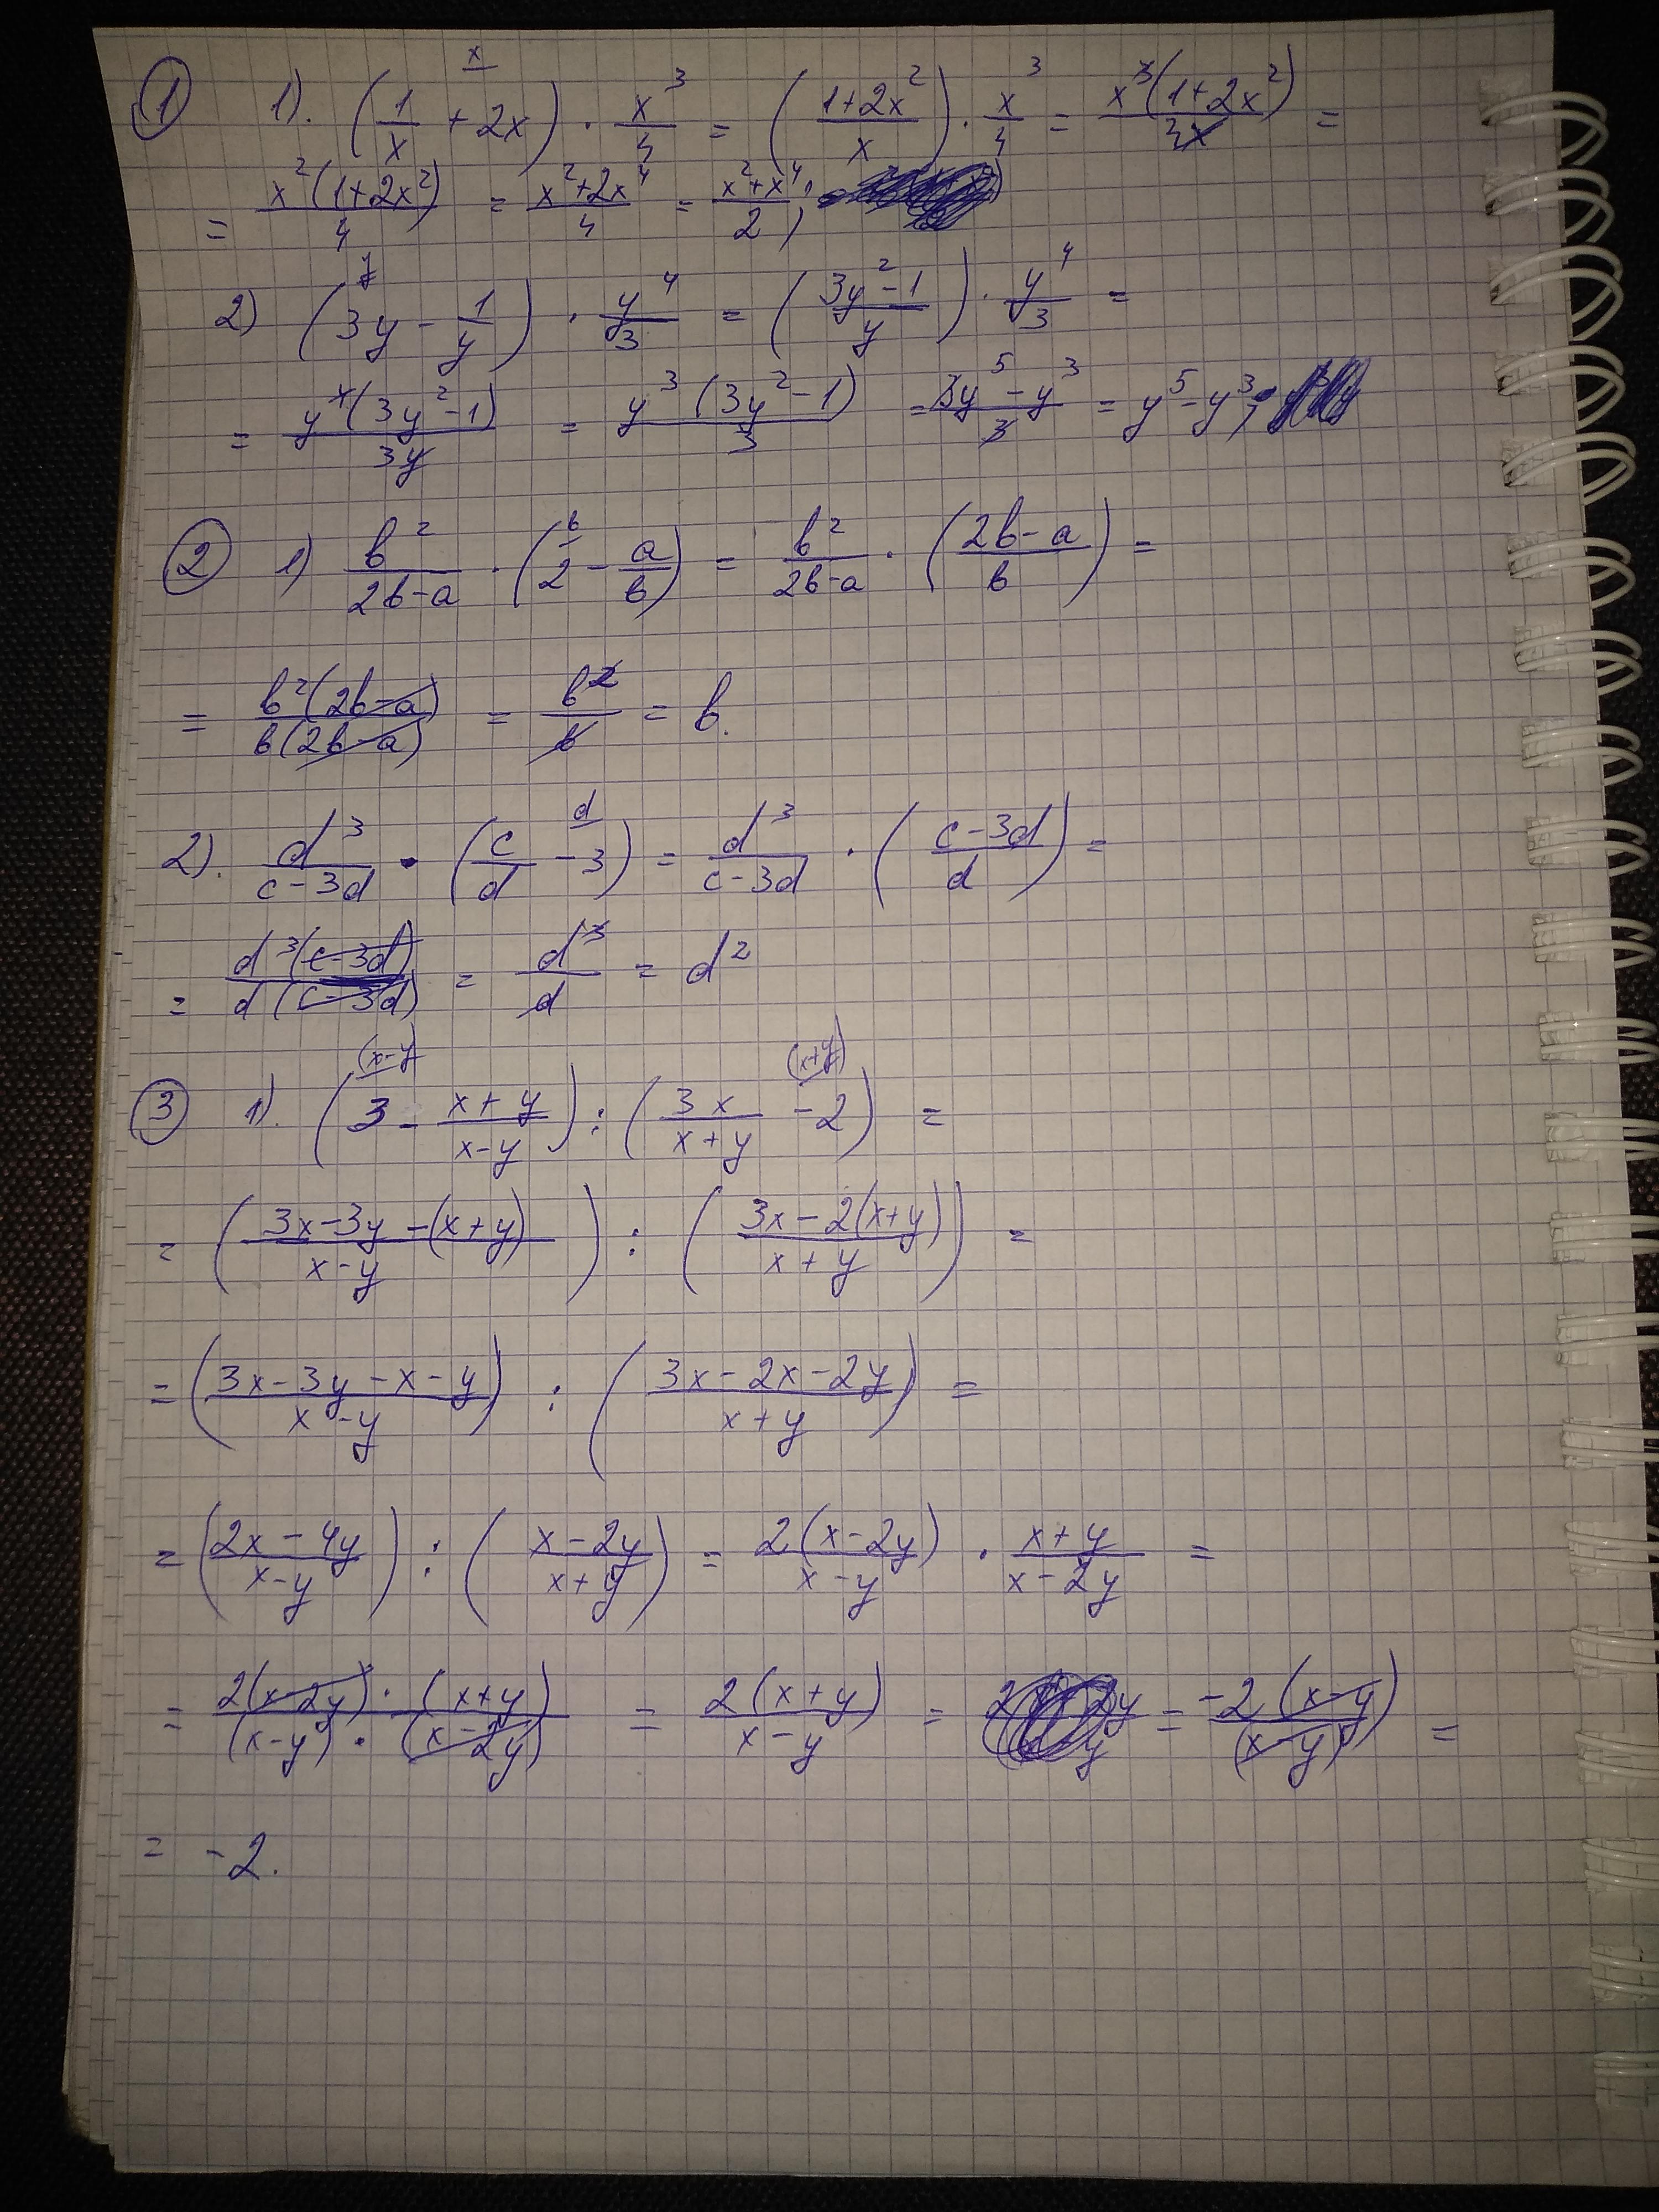 ① 1). (1/x + 2x) · x³/4 = ((1+2x²)/x) · x³/4 = x³(1+2x²)/4x =
= x²(1+2x²)/4 = (x²+2x⁴)/4 = (x²+x⁴)/2;
2) (3y - 1/y) · y⁴/3 = ((3y²-1)/y) · y⁴/3 =
= y⁴(3y²-1)/3y = y³(3y²-1)/3 = (3y⁵-y³)/3 = y⁵-y³;
② 1) b²/(2b-a) · (2 - a/b) = b²/(2b-a) · ((2b-a)/b) =
= b²(2b-a)/b(2b-a) = b²/b = b.
2). d³/(c-3d) · (c/d - 3) = d³/(c-3d) · ((c-3d)/d) =
= d³(c-3d)/d(c-3d) = d³/d = d²
③ 1). (3 - (x+y)/(x-y)) : (3x/(x+y) - 2) =
= ((3x-3y-(x+y))/(x-y)) : ((3x-2(x+y))/(x+y)) =
= ((3x-3y-x-y)/(x-y)) : ((3x-2x-2y)/(x+y)) =
= ((2x-4y)/(x-y)) : ((x-2y)/(x+y)) = 2(x-2y)/(x-y) · (x+y)/(x-2y) =
= 2(x-2y)·(x+y)/(x-y)·(x-2y) = 2(x+y)/(x-y) = = -2(x-y)/(x-y) =
= -2.